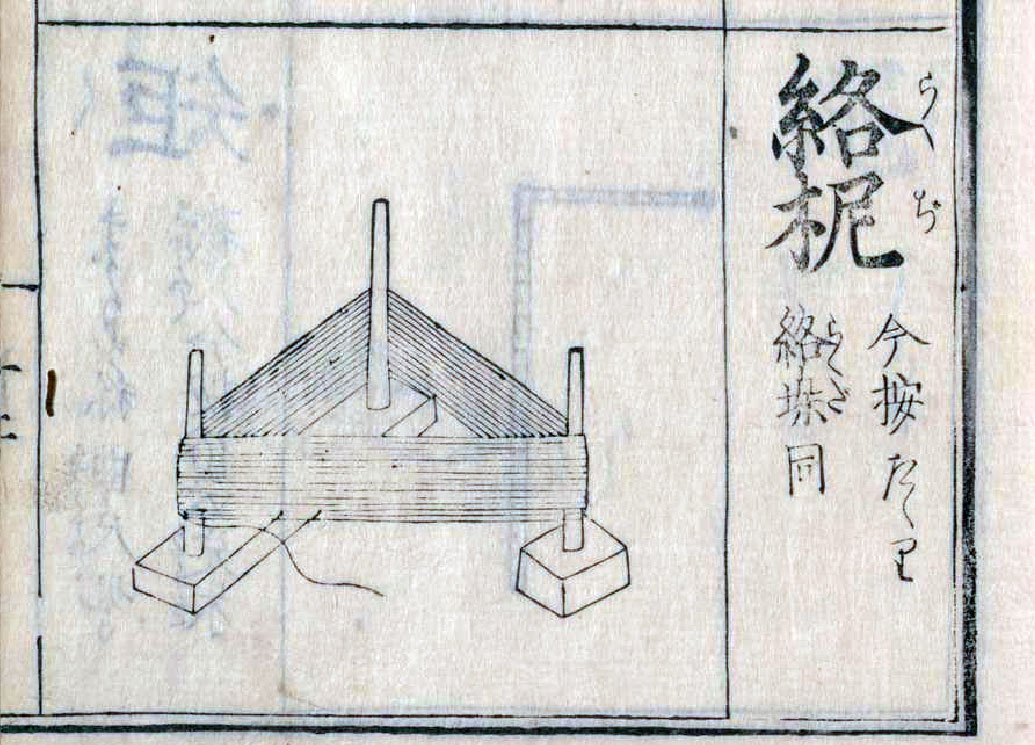 らくぢ
絡柅
今按たゝり
らくだ
絡垛同